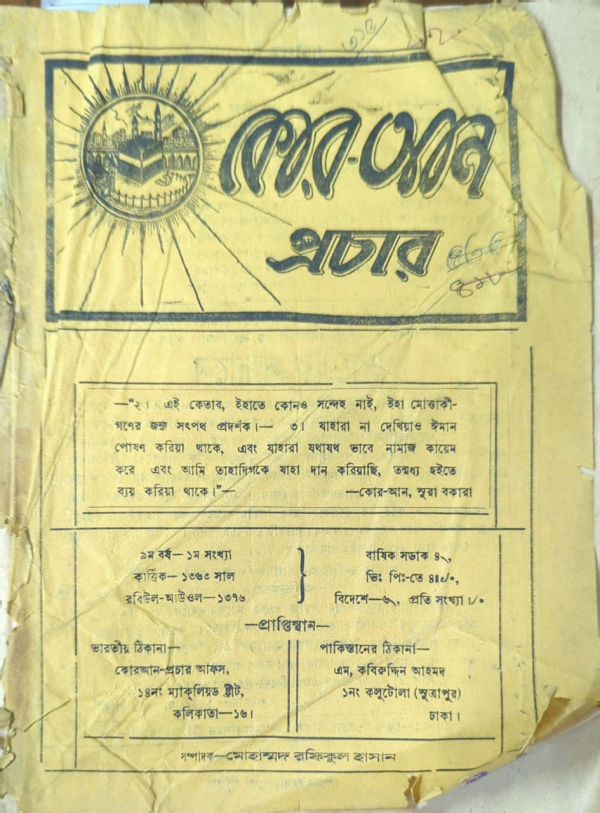 কোর-আন
প্রচার
—"২। এই কেতাব, ইহাতে কোনও সন্দেহ নাই, ইহা মোত্তাকী-
গণের জন্য সৎপথ প্রদর্শক।— ৩। যাহারা না দেখিয়াও ঈমান
পোষণ করিয়া থাকে, এবং যাহারা যথাযথ ভাবে নামাজ কায়েম
করে এবং আমি তাহাদিগকে যাহা দান করিয়াছি, তন্মধ্য হইতে
ব্যয় করিয়া থাকে।"—
—কোর-আন, সুরা বকারা
৯ম বর্ষ—১ম সংখ্যা
কার্ত্তিক—১৩৬৩ সাল
রবিউল-আউওল—১৩৭৬
বার্ষিক সডাক ৪৲,
ভিঃ পিঃ-তে ৪॥৵০,
বিদেশে—৬৲, প্রতি সংখ্যা।৵০
—প্রাপ্তিস্থান—
ভারতীয় ঠিকানা—
কোরআন-প্রচার আফস,
১৪নং ম্যাক্‌লিয়ড ষ্ট্রীট,
কলিকাতা—১৬।
পাকিস্তানের ঠিকানা—
এম, কবিরুদ্দিন আহমদ
১নং কলুটোলা (সুত্রাপুর)
ঢাকা।
সম্পাদক—মোহাম্মদ রফিকুল হাসান